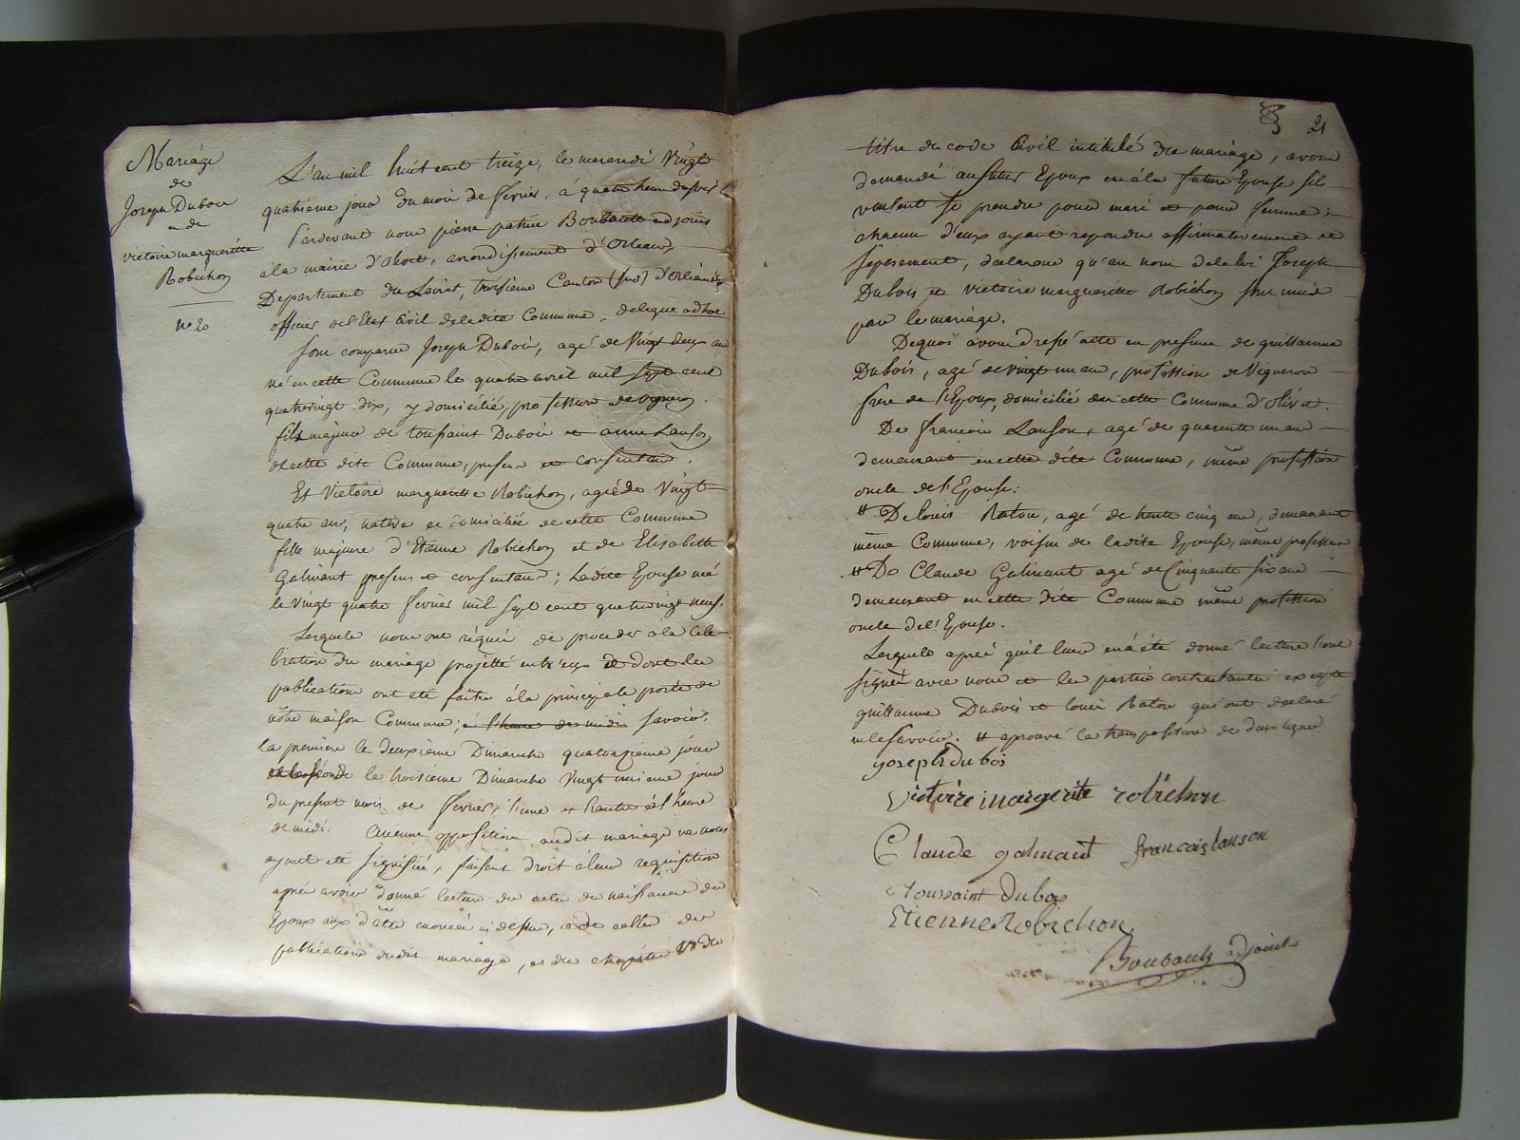 Mariage
de
Joseph Dubois
& de
victoire margueritte
Robichon
No 20
L'an mil huit cent treize, le mercredi Vingt
quatrieme jour du mois de fevrier, à quatre heures du soir
Pardevant nous pierre patrice Boubault adjoint
à la mairie d'olivet, arrondissement d'Orleans,
Departement du Loiret, troisieme Canton (sud) d'Orleans,
officier de l'Etat Civil de ladite Commune, delegué ad hoc
sont comparus Joseph Dubois, agé de Vingt deux ans
né en cette Commune le quatre avril mil sept cent
quatrevingt dix, y domicilié, profession de vigneron.
fils majeur de toussaint Dubois et anne Lanson
de cette dite Commune, present et consentans.
Et Victoire margueritte Robichon, agée de Vingt
quatre ans, native et domiciliée de cette Commune
fille majeure d'Etienne Robichon et de Elisabeth
Galmant presens et consentans; Ladite Epouse née
le vingt quatre fevrier mil sept cent quatrevingt neuf.
Lesquels nous ont requis de proceder à la cele
bration du mariage projetté entr'eux et dont les
publications ont été faites à la principale porte de
nôtre maison Commune; à l'heure de midi savoir,
la premiere le deuxieme Dimanche quatorzieme jour
et la seconde le troisieme Dimanche Vingt unieme jour
du present mois de fevrier, l'une et l'autre à l'heure
de midi. Aucune opposition audit mariage ne nous
ayant été signifiée, faisant droit à leur requisition
après avoir donné lecture des actes de naissance des
Epoux aux dâtes enoncés ci dessus, & de celles des
publications dudit mariage, et du chapitre VI du
21
titre du code Civil intitulé du mariage, avons
demandé au futur Epoux et à la future Epouse s'ils
veulent se prendre pour mari et pour femme;
chacun d'eux ayant repondu affirmativement et
separement, declarons qu'au nom de la loi Joseph
Dubois et victoire margueritte Robichon sont unis
par le mariage.
Dequoi avons dressé acte en presence de guillaume
Dubois, agé de vingt un ans, profession de Vigneron
frere de l'Epoux, domicilié de cette Commune d'olivet.
De francois Lanson, agé de quarente un ans
demeurant en cette dite Commune, même profession
oncle de l'Epouse.
# De louis Raton, agé de trente cinq ans, demeurant
même Commune, voisin de ladite Epouse, même profession
# De Claude Galmant agé de Cinquante six ans
demeurant en cette dite Commune même profession
oncle de l'Epouse.
Lesquels après qu'il leur en a été donné lecture l'ont
signé avec nous et les parties contractantes excepté
guillaume Dubois et louis Raton qui ont declaré
ne le savoir. # aprouvé la transposition de deux lignes
yoseph dubois
victoire margerite robichon
Claude galmant francois lanson
toussaint Dubois
Etienne Robichon
Boubault adjoint